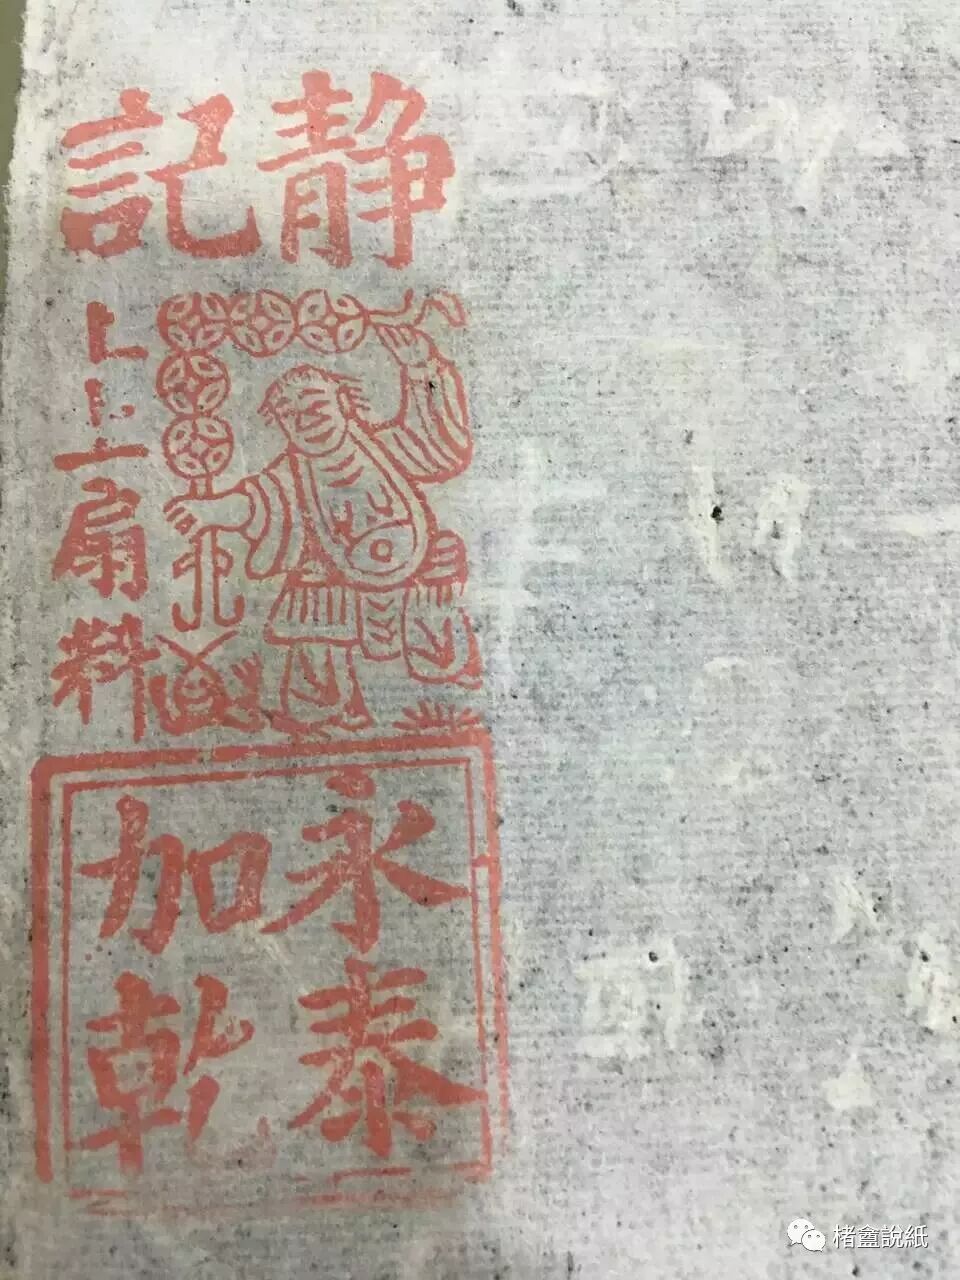 静記
上上扇料
永泰
加乾
楮盦說紙